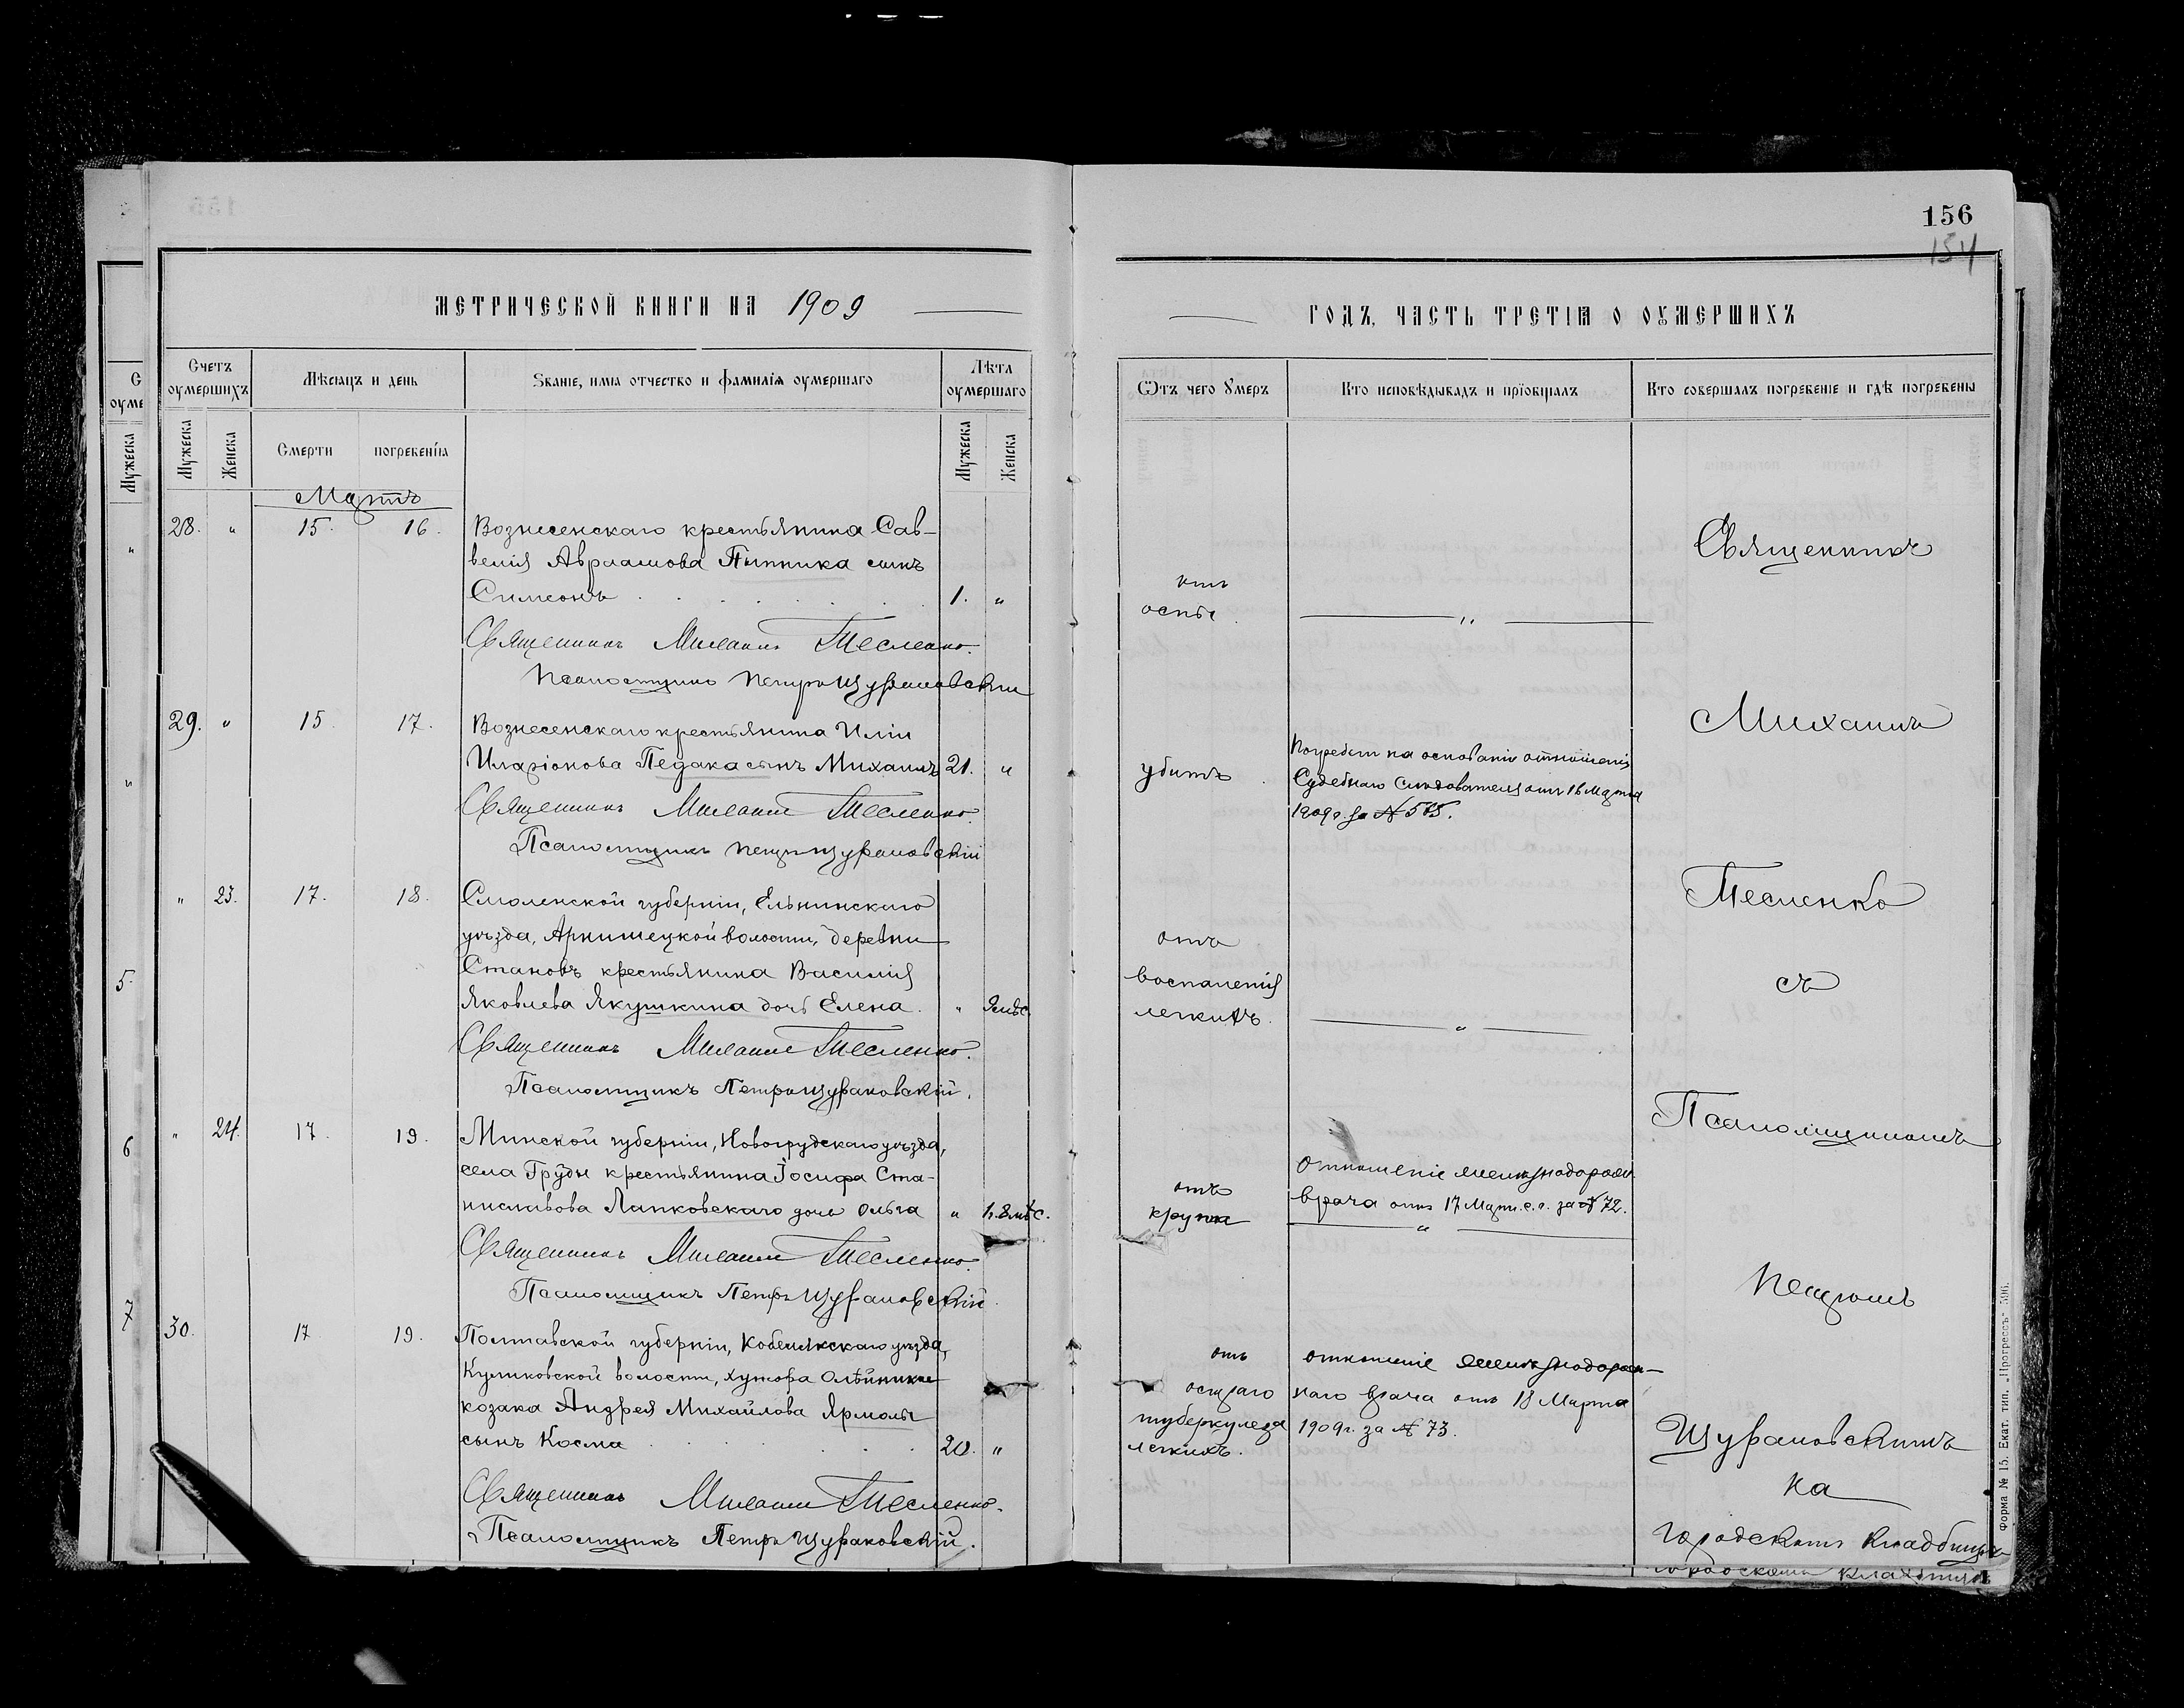 156
154
МЕТРИЧЕСКОЙ КНИГИ НА 1909
ГОДЪ, ЧАСТЬ ТРЕТІѦ О ОУМЕРШИХЪ
Счетъ оумершихъ
Мѣсяцъ и день
Званіе, имя отчество и фамилія оумершаго
Лѣта оумершаго
Ѿтъ чего умеръ
Кто исповѣдывалъ и пріобщалъ
Кто совершалъ погребеніе и гдѣ погребены
Мужеска
Женска
Смерти
погребенія
Мужеска
Женска
Мартъ
28. " 15. 16. Вознесенскаго крестьянина Сав-
велія Авраамова Пынника сынъ
Симеонъ 1. "
отъ
оспы
"
Священникъ Михаилъ Тесленко.
Псаломщикъ Петръ Щураковскій
29. " 15 17. Вознесенскаго крестьянина Иліи
Иларіонова Педака сынъ Михаилъ 21. "
убитъ.
Погребенъ на основаніи отношенія
Судебнаго Слѣдователя отъ 16 Марта
1909 г. за №
Священникъ Михаилъ Тесленко.
Псаломщикъ Петръ Щураковскій
" 23. 17. 18. Смоленской губерніи, Ельнинскаго
уѣзда, Арнишецкой волости, деревни
Становъ крестьянина Василія
Яковлева Якушкина дочь Елена. " 9 мѣс.
отъ
воспаленія
легкихъ.
"
Священникъ Михаилъ Тесленко.
Псаломщикъ Петръ Щураковскій.
" 24. 17. 19. Минской губерніи, Новогрудскаго уѣзда,
села Груды крестьянина Іосифа Ста-
ниславова Лапковскаго дочь Ольга " 1 г. 8 мѣс.
отъ
крупа
Отношеніе желѣзнодорожн.
врача отъ 17 Март. с. г. за № 72.
"
Священникъ Михаилъ Тесленко.
Псаломщикъ Петръ Щураковскій
30. 17 19. Полтавской губерніи, Кобелякскаго уѣзда,
Куликовской волости, хутора
козака Андрея Михайлова Ярмолы
сынъ Косма 20. "
отъ
остраго
туберкулеза
легкихъ.
отношеніе желѣзнодорож-
наго врача отъ 18 Марта
1909 г. за № 73.
Священникъ Михаилъ Тесленко.
Псаломщикъ Петръ Щураковскій.
Священникъ
Михаилъ
Тесленко
съ
Псаломщикомъ
Петромъ
Щураковскимъ
на
городскомъ кладбищѣ
городскомъ кладбищѣ
Форма № 15. Екат. тип. „Прогрессъ“
5
6
7